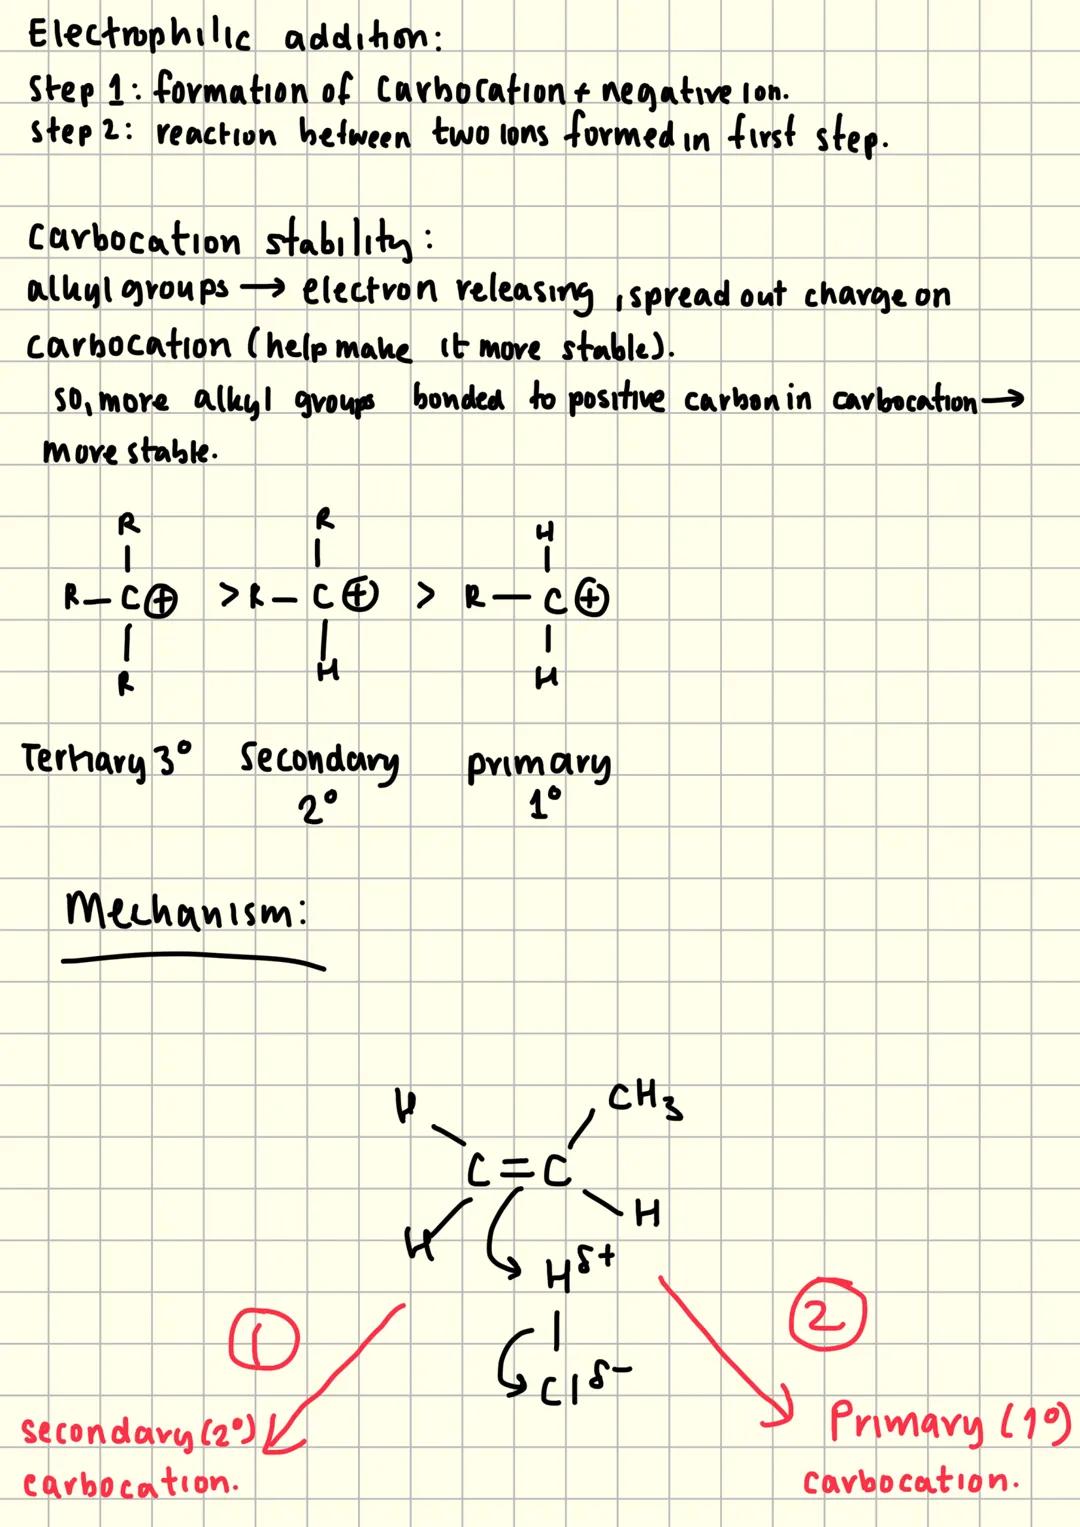 Electrophilic addition:
Step 1: formation of carbocation + negative ion.
Step 2: reaction between two ions formed in first step.
Carbocation stability:
alkyl groups → electron releasing, spread out charge on
carbocation (help make it more stable).
so, more alkyl groups bonded to positive carbon in carbocation →
more stable.
R R H
R–C⊕ > R–C⊕ > R–C⊕
R H H
Tertiary 3° Secondary primary
2° 1°
Mechanism:
H CH₃
C=C
H H
H δ+
① ②
Cl δ-
secondary (2°) Primary (1°)
carbocation. carbocation.